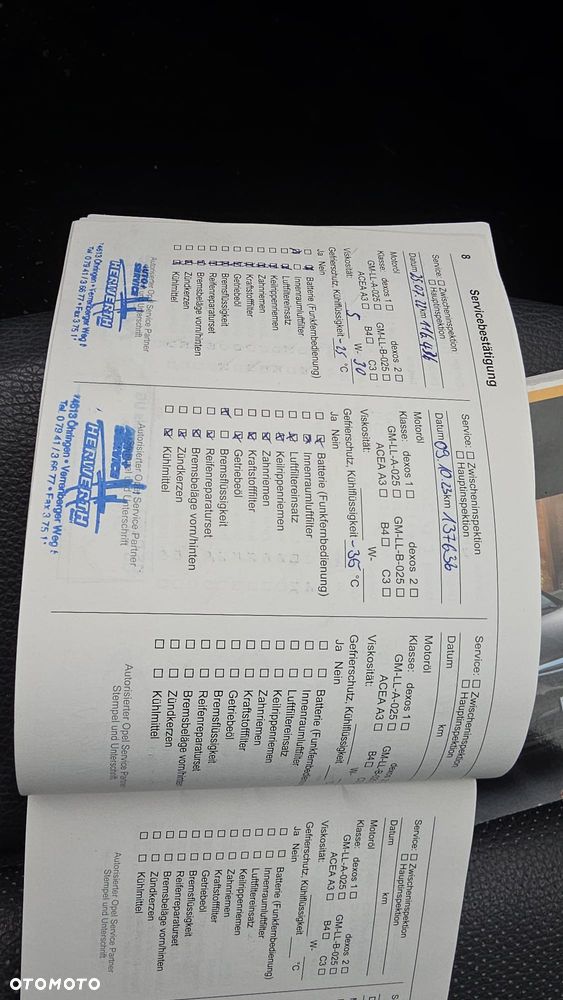 8
Servicebestätigung
Service: ☐ Zwischeninspektion
☐ Hauptinspektion
Motoröl
Klasse: dexos 1 ☐ dexos 2 ☐
GM-LL-A-025 ☐ GM-LL-B-025 ☐
ACEA A3 ☐ B4 ☐ C3 ☐
Viskosität: 5 W- 30
Gefrierschutz, Kühlflüssigkeit -25 °C
Ja Nein
Batterie (Funkfernbedienung)
Innenraumluftfilter
Luftfiltereinsatz
Keilrippenriemen
Zahnriemen
Kraftstofffilter
Getriebeöl
Bremsflüssigkeit
Reifenreparaturset
Bremsbeläge vorn/hinten
Zündkerzen
Kühlmittel
Autorisierter Opel Service Partner
AUTO
SERVICE
HERWERTH
74613 Öhringen • Verrenberger Weg
Tel. 0 79 41 / 3 66 77 • Fax: 3 75
Service: ☐ Zwischeninspektion
☐ Hauptinspektion
Datum 09.10.23 km 137636
Motoröl
Klasse: dexos 1 ☐ dexos 2 ☐
GM-LL-A-025 ☐ GM-LL-B-025 ☐
ACEA A3 ☐ B4 ☐ C3 ☐
Viskosität: W-
Gefrierschutz, Kühlflüssigkeit -36 °C
Ja Nein
Batterie (Funkfernbedienung)
Innenraumluftfilter
Luftfiltereinsatz
Keilrippenriemen
Zahnriemen
Kraftstofffilter
Getriebeöl
Bremsflüssigkeit
Reifenreparaturset
Bremsbeläge vorn/hinten
Zündkerzen
Kühlmittel
Autorisierter Opel Service Partner
SERVICE
HERWERTH
74613 Öhringen • Verrenberger Weg
Tel. 0 79 41 / 3 66 77 • Fax: 3 75
Service: ☐ Zwischeninspektion
☐ Hauptinspektion
Datum km
Motoröl
Klasse: dexos 1 ☐
GM-LL-A-025 ☐
ACEA A3 ☐ B4 ☐
Viskosität: W-
Gefrierschutz, Kühlflüssigkeit
Ja Nein
☐ ☐ Batterie (Funkfernbedie
☐ ☐ Innenraumluftfilter
☐ ☐ Luftfiltereinsatz
☐ ☐ Keilrippenriemen
☐ ☐ Zahnriemen
☐ ☐ Kraftstofffilter
☐ ☐ Getriebeöl
☐ ☐ Bremsflüssigkeit
☐ ☐ Reifenreparaturset
☐ ☐ Bremsbeläge vorn/hinte
☐ ☐ Zündkerzen
☐ ☐ Kühlmittel
Autorisierter Opel Service Partne
Stempel und Unterschrift
Service: ☐ Zwischeninspektion
☐ Hauptinspektion
Datum km
Motoröl
Klasse: dexos 1 ☐ dexos 2 ☐
GM-LL-A-025 ☐ GM-LL-B-025 ☐
ACEA A3 ☐ B4 ☐ C3 ☐
Viskosität: W-
Gefrierschutz, Kühlflüssigkeit °C
Ja Nein
☐ ☐ Batterie (Funkfernbedienung)
☐ ☐ Innenraumluftfilter
☐ ☐ Luftfiltereinsatz
☐ ☐ Keilrippenriemen
☐ ☐ Zahnriemen
☐ ☐ Kraftstofffilter
☐ ☐ Getriebeöl
☐ ☐ Bremsflüssigkeit
☐ ☐ Reifenreparaturset
☐ ☐ Bremsbeläge vorn/hinten
☐ ☐ Zündkerzen
☐ ☐ Kühlmittel
Autorisierter Opel Service Partner
Stempel und Unterschrift
OTOMOTO